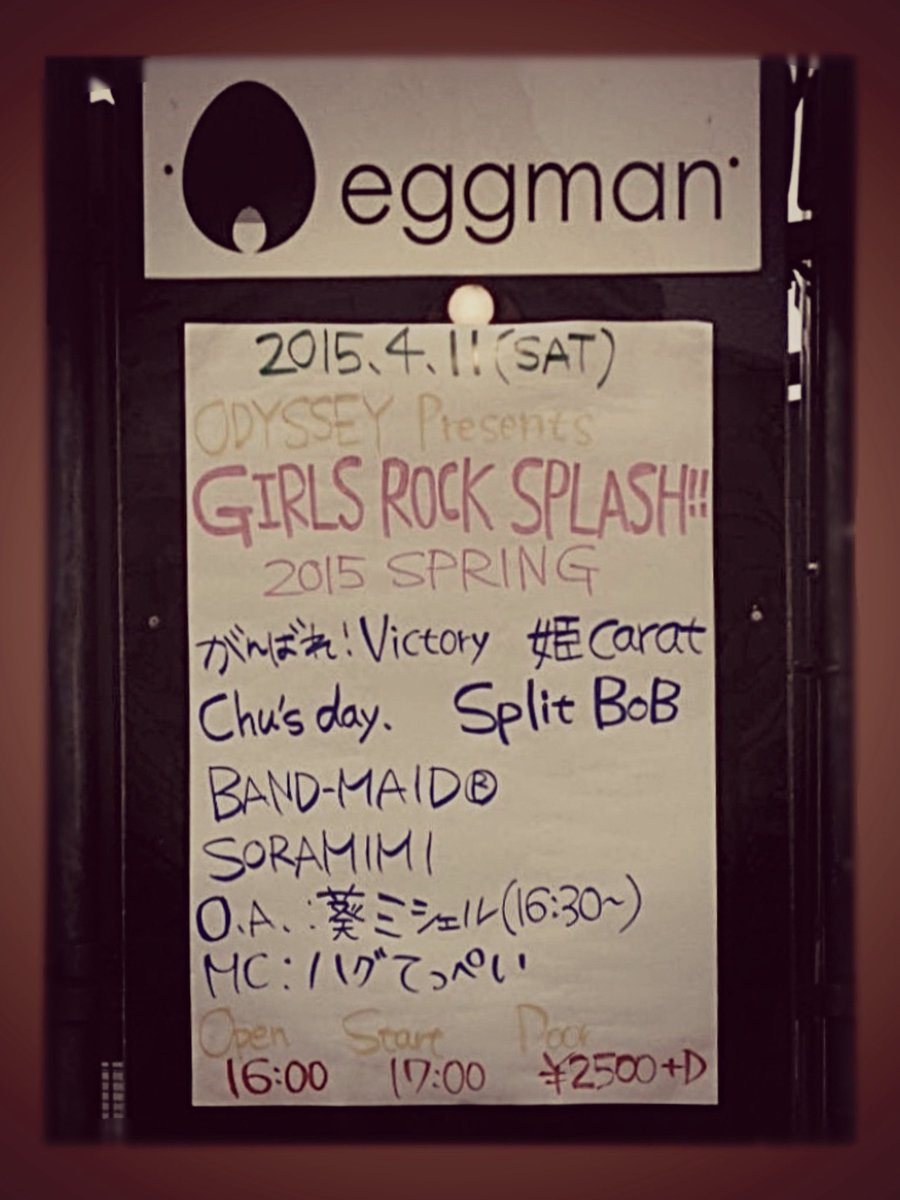 eggman
2015.4.11(SAT)
ODYSSEY Presents
GIRLS ROCK SPLASH!!
2015 SPRING
がんばれ!Victory 姫carat
Chu's day. Split BoB
BAND-MAID®
SORAMIMI
O.A.:葵ミシェル(16:30~)
MC:ハグてっぺい
Open Start Door
16:00 17:00 ¥2500+D